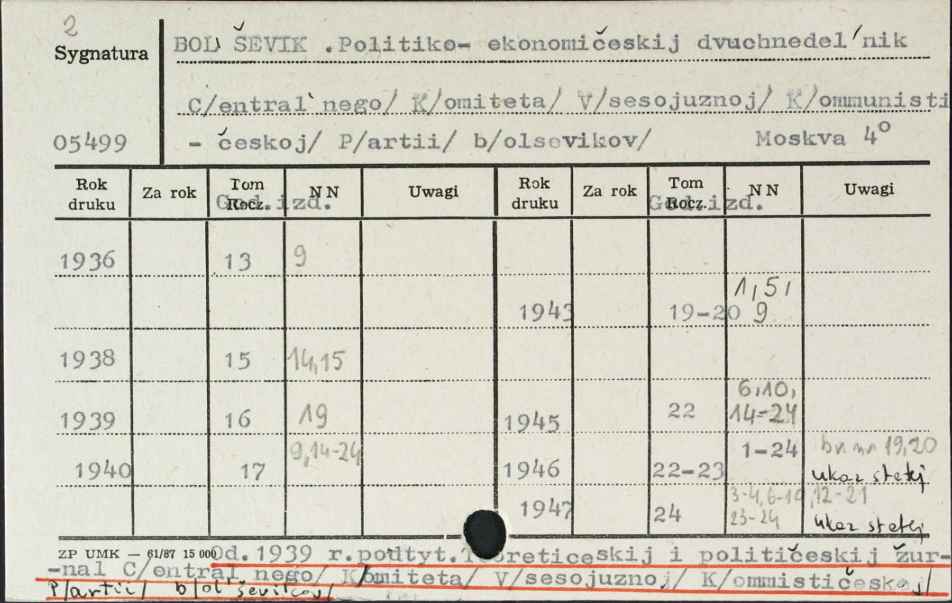 2
Sygnatura
BOL' ŠEVIK .Politiko- ekonomičeskij dvuchnedel'nik
C/entral'nego/ K/omiteta/ V/sesojuznoj/ K/ommunisti
05499 - českoj/ P/artii/ b/olsevikov/ Moskva 4°
Rok druku Za rok Tom Rocz. NN Uwagi Rok druku Za rok Tom Rocz. NN Uwagi
God.izd. God.izd.
1936 13 9
1943 19-20 1,5,9
1938 15 14,15
1939 16 19 1945 22 6,10,14-24
1940 17 9,14-24 1946 22-23 1-24 br. nr 19,20
ukaz statej
1947 24 3-4,6-10,12-21
23-24 ukaz statej
ZP UMK — 61/87 15 000 Od.1939 r.podtyt.Teoreticeskij i političeskij žur-
-nal C/entral nego/ K/omiteta/ V/sesojuznoj/ K/ommističeskoj/
P/artii/ b/ol ševikov/